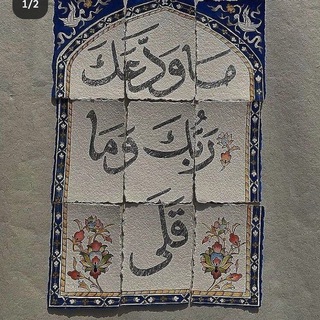 1/2
مَا وَدَّعَكَ
رَبُّكَ وَمَا
قَلَى